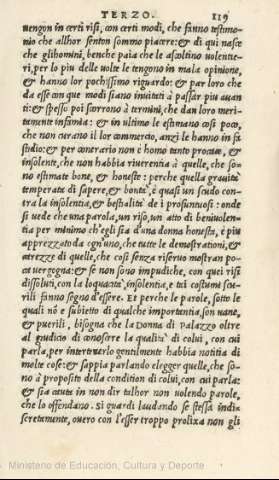 TERZO. 119
uengon in certi risi, con certi modi, che fanno testimo-
nio che allhor senton sommo piacere: & di qui nasce
che glihomini, benche paia che le ascoltino volentie-
ri, per lo piu delle volte le tengono in mala opinione,
& hanno lor pochissimo riguardo: & par loro che
da esse con que modi siano inuitati à passar piu auan-
ti: & spesso poi scorrono à termini, che dan loro meri-
tamente infamia: & in ultimo le estimano cosi poco,
che non curano il lor commercio, anzi le hanno in fa-
stidio: & per contrario non è homo tanto procace, &
insolente, che non habbia riuerentia à quelle, che so-
no estimate bone, & honeste: perche quella grauità
temperata di sapere, & bontà, è quasi un scudo con-
tra la insolentia, & bestialità de i prosuntuosi: onde
si uede che una parola, un riso, un atto di beniuolen-
tia per minimo ch'egli sia d'una donna honesta, è piu
apprezzato da ogn'uno, che tutte le demostrationi, &
carezze di quelle, che cosi senza riseruo mostran po-
ca uergogna: & se non sono impudiche, con quei risi
dissoluti, con la loquacità, insolentia, e tai costumi scu-
rili fanno segno d'essere. Et perche le parole, sotto le
quali nõ è subietto di qualche importantia, son uane,
& puerili, bisogna che la Donna di palazzo oltre
al giudicio di conoscere la qualità di colui, con cui
parla, per intertenerlo gentilmente habbia notitia di
molte cose: & sappia parlando elegger quelle, che so-
no à proposito della condition di colui, con cui parla:
& sia cauta in non dir talhor non uolendo parole,
che lo offendano. Si guardi laudando se stessa indis-
cretamente, ouero con l'esser troppo prolixa non gli
Ministerio de Educación, Cultura y Deporte